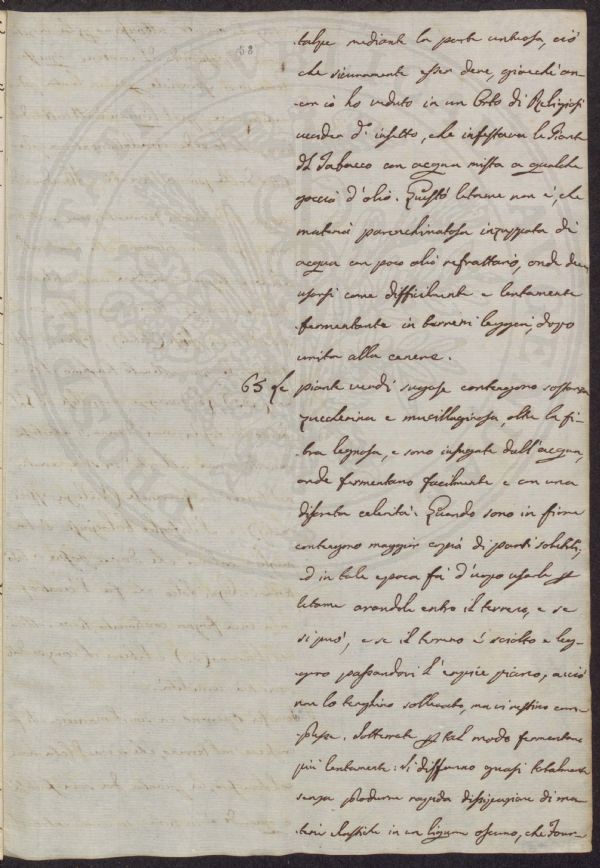 58
talpe mediante la parte untuosa, ciò
che sicuramente esser deve, giacchè an-
cor io ho veduto in un Orto di Religiosi
uccider d'insetto, che infestava le Piante
di Tabacco con acqua mista a qualche
goccia d'olio. Questo letame non è, che
materia parenchimatosa inzuppata di
acqua con poco olio refrattario, onde deve
usarsi come difficilmente e lentamente
fermentante in terreni leggeri, dopo
unita alla cenere.
65 Le piante verdi sugose contengono sostanza
zuccherina e mucillaginosa, oltre la fi-
bra legnosa, e sono impregate dall'acqua,
onde fermentano facilmente e con una
discreta celerità. Quando sono in fiore
contengono maggior copia di parti solubili,
ed in tale epoca fa d'uopo usarle p
letame arandole entro il terreno, e se
si può, e se il terreno è sciolto e leg-
gero passandovi l'erpice piano, acciò
non lo tenghino sollevato, ma vi restino com-
presse. Sotterrate p tal modo fermentano
più lentamente: Si disfanno quasi totalmente
senza produrre rapida dissipazione di ma-
terie elastiche in un liquame oscuro, che four-